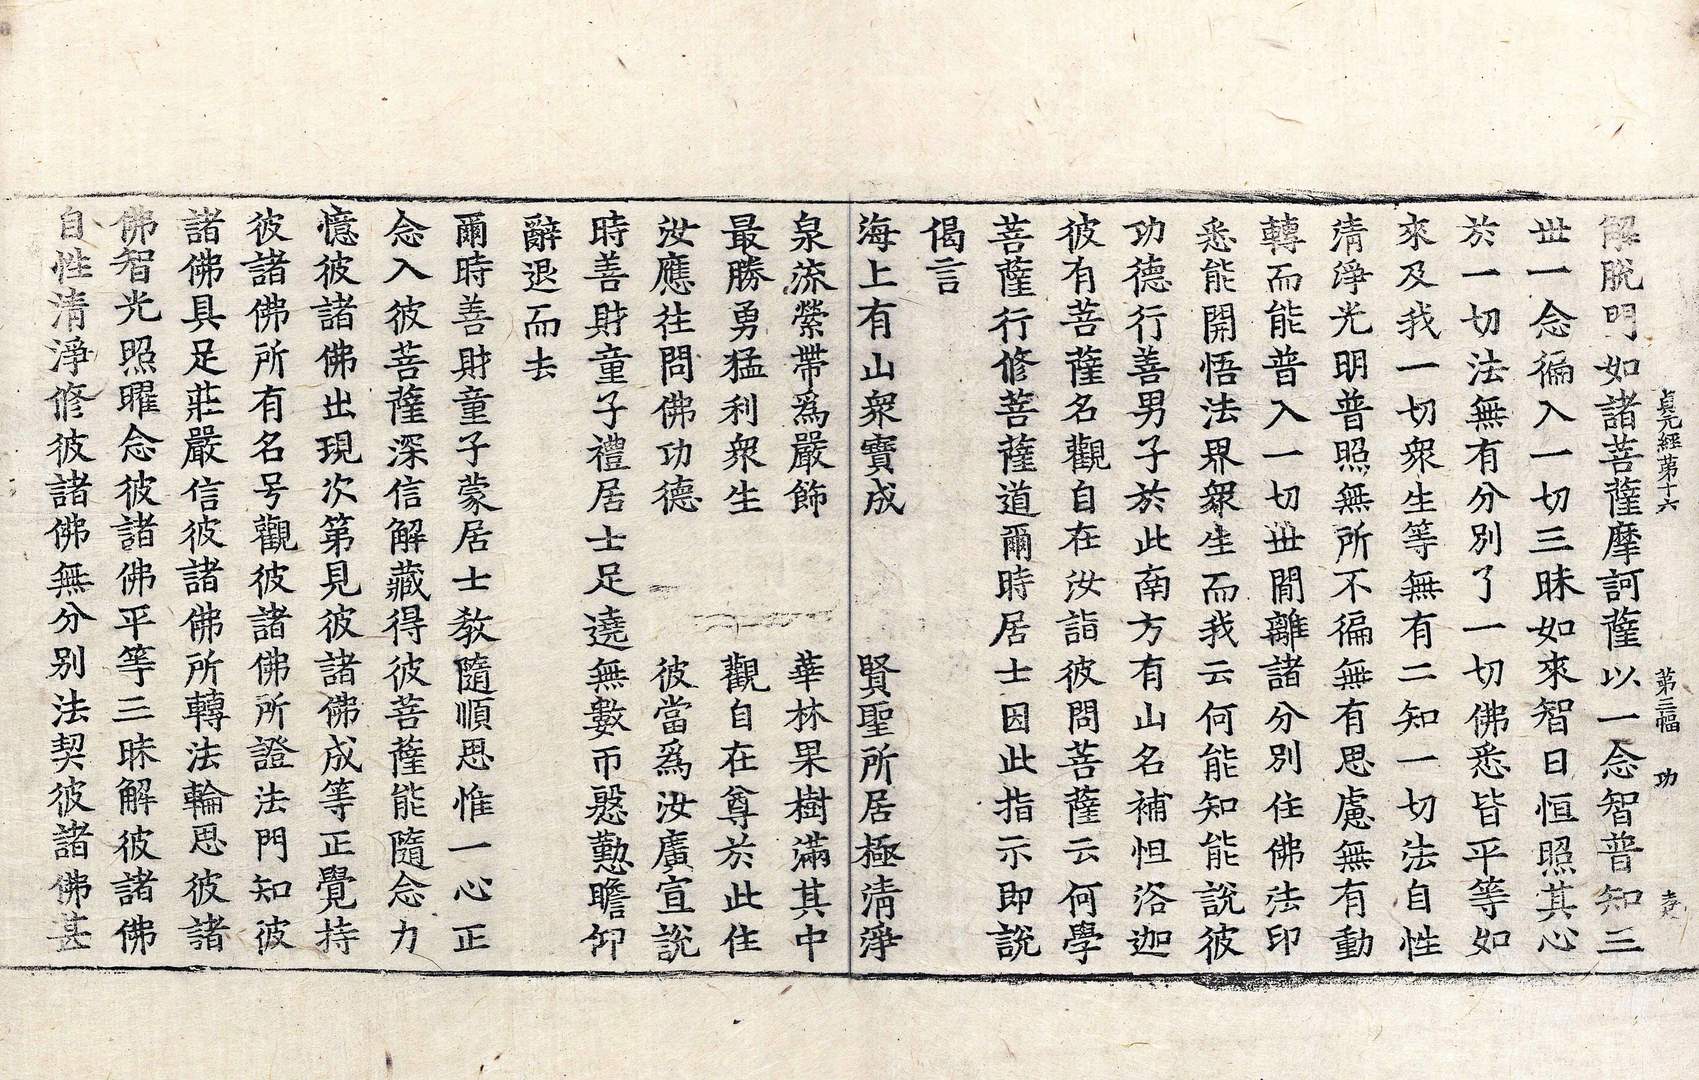 貞元經第十六 第三幅 功
解脫門如諸菩薩摩訶薩以一念智普知三
世一念徧入一切三昧如來智日恒照其心
於一切法無有分別了一切佛悉皆平等如
來及我一切衆生等無有二知一切法自性
清淨光明普照無所不徧無有思慮無有動
轉而能普入一切世閒離諸分別住佛法印
悉能開悟法界衆生而我云何能知能說彼
功德行善男子於此南方有山名補怛洛迦
彼有菩薩名觀自在汝詣彼問菩薩云何學
菩薩行修菩薩道爾時居士因此指示即說
偈言
海上有山衆寶成 賢聖所居極清淨
泉流縈帶爲嚴飾 華林果樹滿其中
最勝勇猛利衆生 觀自在尊於此住
汝應往問佛功德 彼當爲汝廣宣說
時善財童子禮居士足遶無數帀慇懃瞻仰
辭退而去
爾時善財童子蒙居士教隨順思惟一心正
念入彼菩薩深信解藏得彼菩薩能隨念力
憶彼諸佛出現次第見彼諸佛成等正覺持
彼諸佛所有名号觀彼諸佛所證法門知彼
諸佛具足莊嚴信彼諸佛所轉法輪思彼諸
佛智光照曜念彼諸佛平等三昧解彼諸佛
自性清淨修彼諸佛無分別法契彼諸佛甚